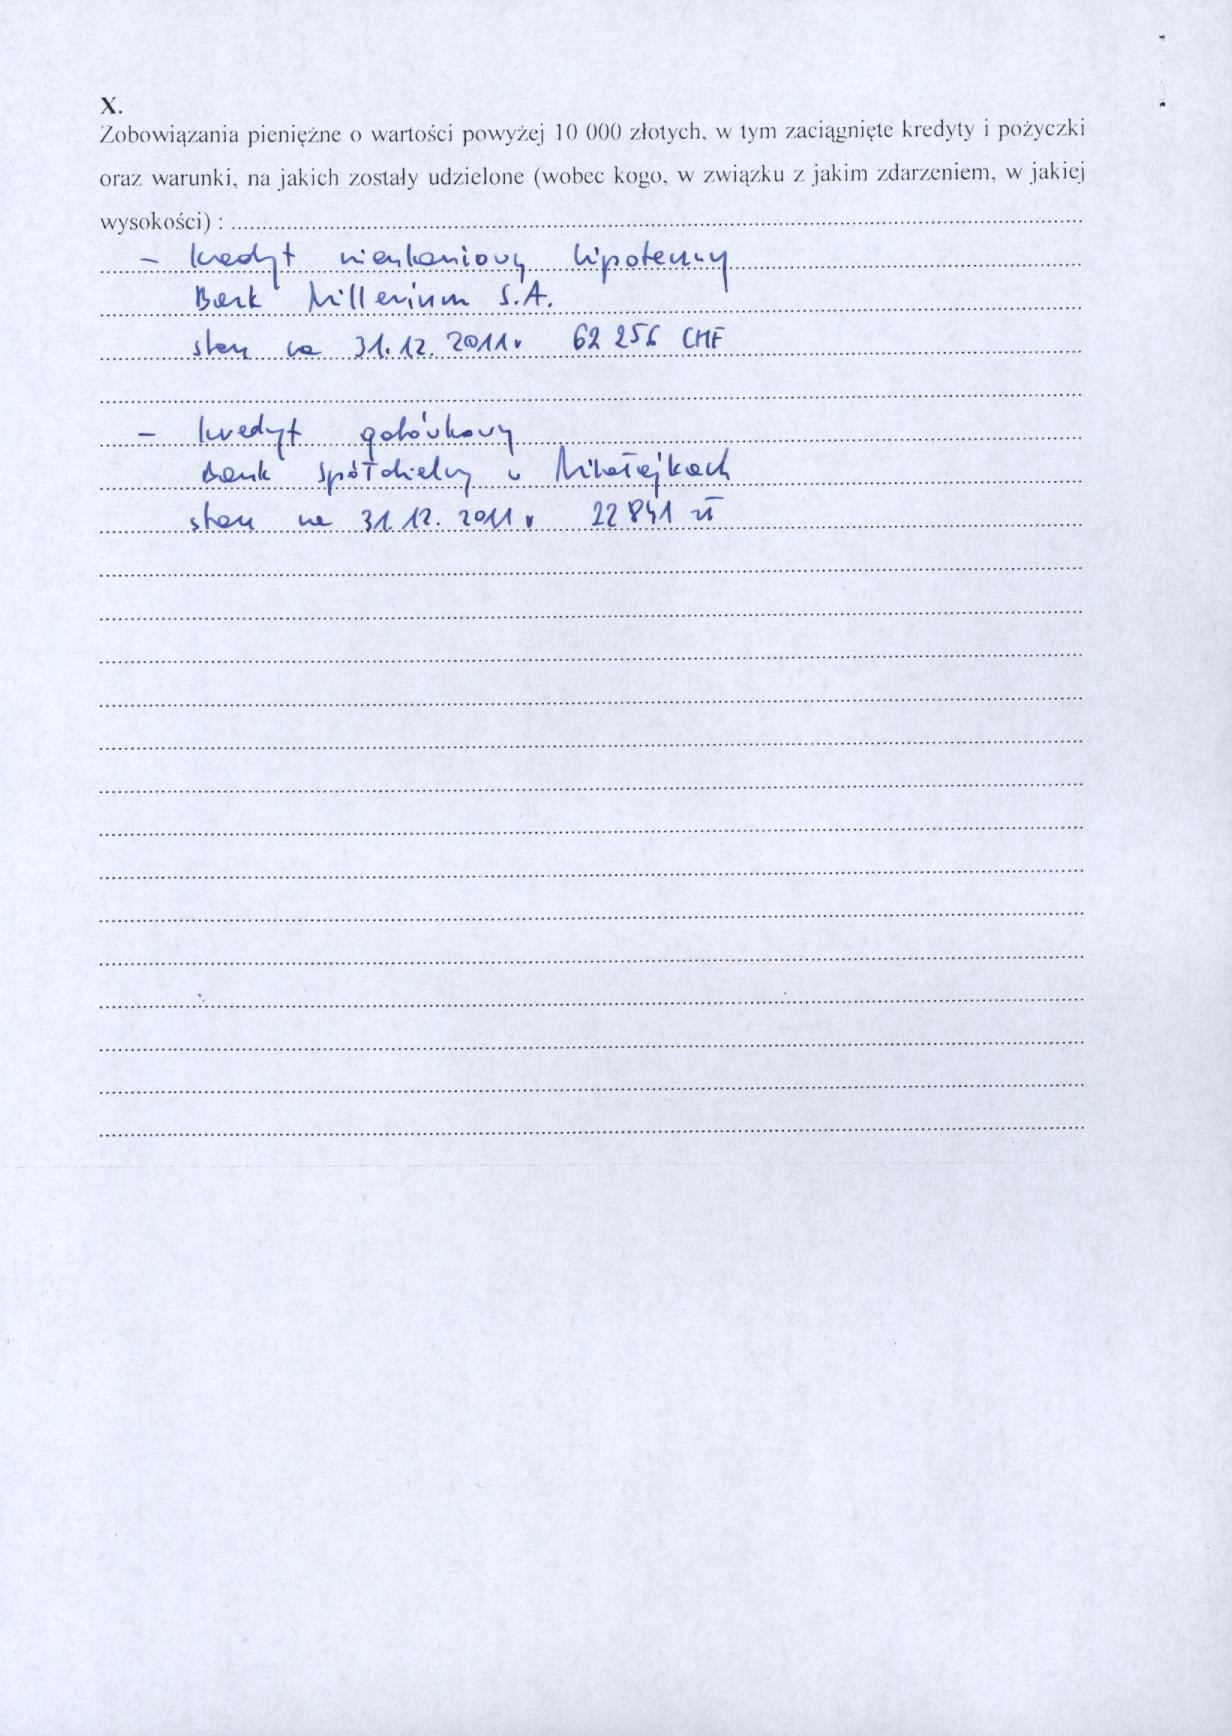 X.
Zobowiązania pieniężne o wartości powyżej 10 000 złotych, w tym zaciągnięte kredyty i pożyczki
oraz warunki, na jakich zostały udzielone (wobec kogo, w związku z jakim zdarzeniem, w jakiej
wysokości) :
– kredyt mieszkaniowy hipoteczny
Bank Millenium S.A.
stan na 31.12.2011r 62 256 CHF
– kredyt gotówkowy
Bank Spółdzielczy w Mikołajkach
stan na 31.12.2011r 22 841 zł